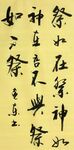 祭如在祭神如
神在吾不與祭
如不祭